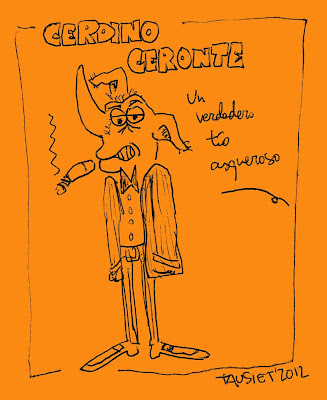 CERDINO
CERONTE
Un
verdadero
tío
asqueroso
TAUSIET'2012